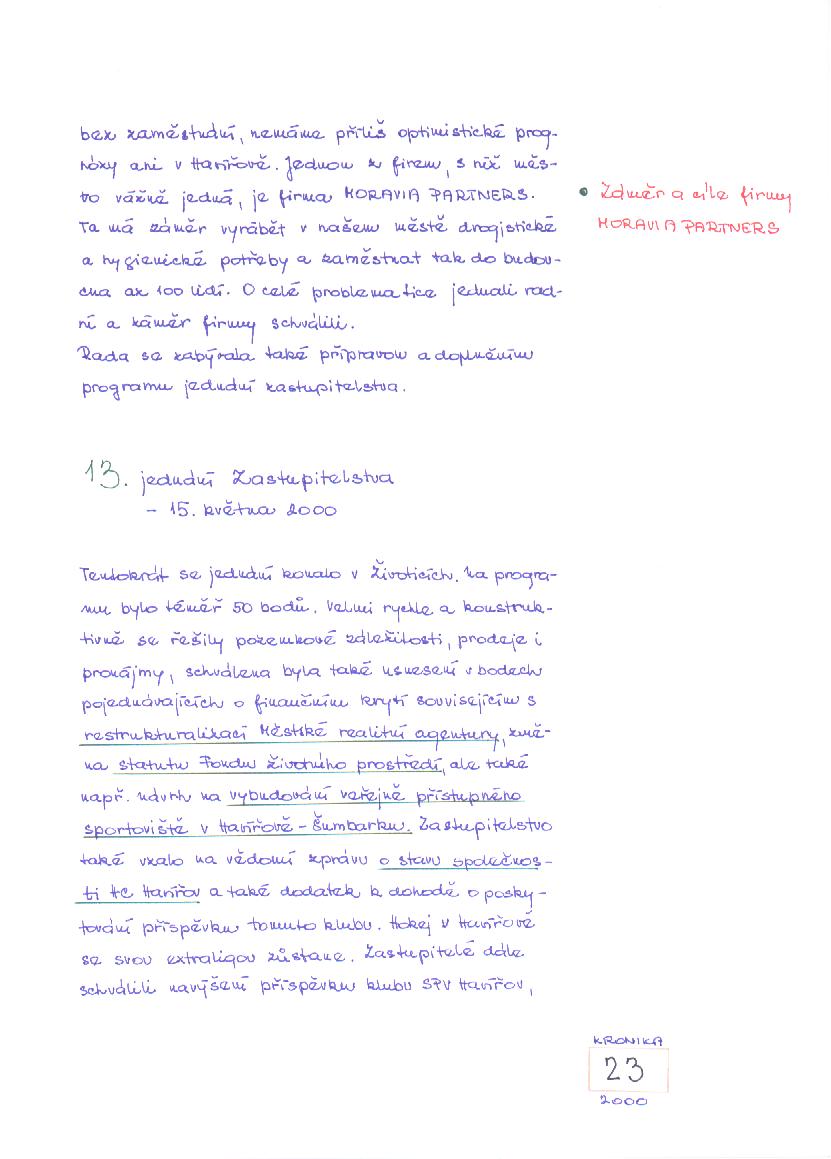 bez zaměstnání, nemáme příliš optimistické prog-
nózy ani v Havířově. Jednou z firem, s níž měs-
to vážně jedná, je firma MORAVIA PARTNERS.
Ta má záměr vyrábět v našem městě drogistické
a hygienické potřeby a zaměstnat tak do budou-
cna až 100 lidí. O celé problematice jednali rad-
ní a záměr firmy schválili.
Rada se zabývala také přípravou a doplněním
programu jednání zastupitelstva.
• Záměr a cíle firmy
MORAVIA PARTNERS
13. jednání Zastupitelstva
- 15. května 2000
Tentokrát se jednání konalo v Životicích. Na progra-
mu bylo téměř 50 bodů. Velmi rychle a konstruk-
tivně se řešily pozemkové záležitosti, prodeje i
pronájmy, schválena byla také usnesení v bodech
pojednávajících o finančním krytí souvisejícím s
restrukturalizací Městské realitní agentury, změ-
na statutu Fondu životního prostředí, ale také
např. návrh na vybudování veřejně přístupného
sportoviště v Havířově - Šumbarku. Zastupitelstvo
také vzalo na vědomí zprávu o stavu společnos-
ti HC Havířov a také dodatek k dohodě o posky-
tování příspěvku tomuto klubu. Hokej v Havířově
se svou extraligou zůstane. Zastupitelé dále
schválili navýšení příspěvku klubu SPV Havířov,
KRONIKA
23
2000